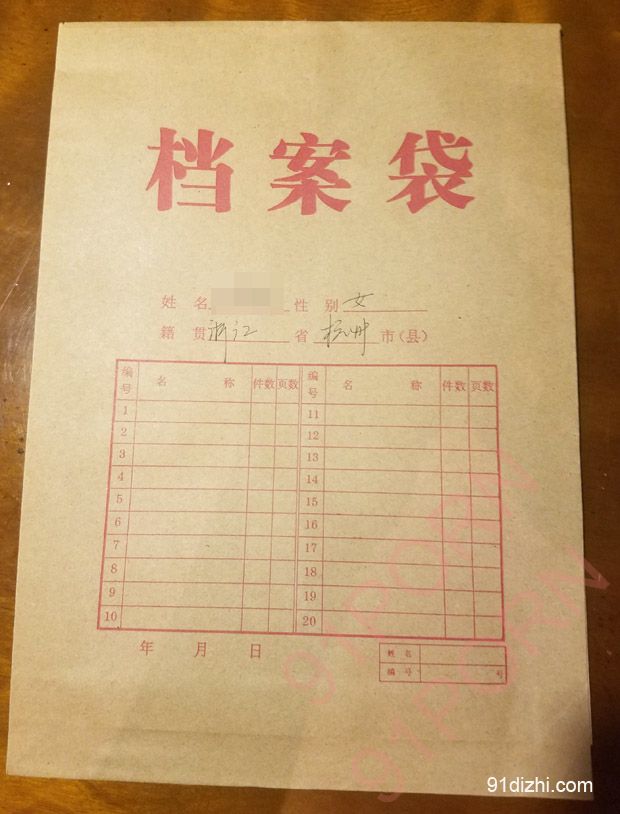 档案袋
姓名 性别 女
籍贯 浙江 省 杭州 市(县)
编号 名称 件数 页数 编号 名称 件数 页数
1 11
2 12
3 13
4 14
5 15
6 16
7 17
8 18
9 19
10 20
年 月 日
姓名
编号 号
91PORN
91PORN
91dizhi.com